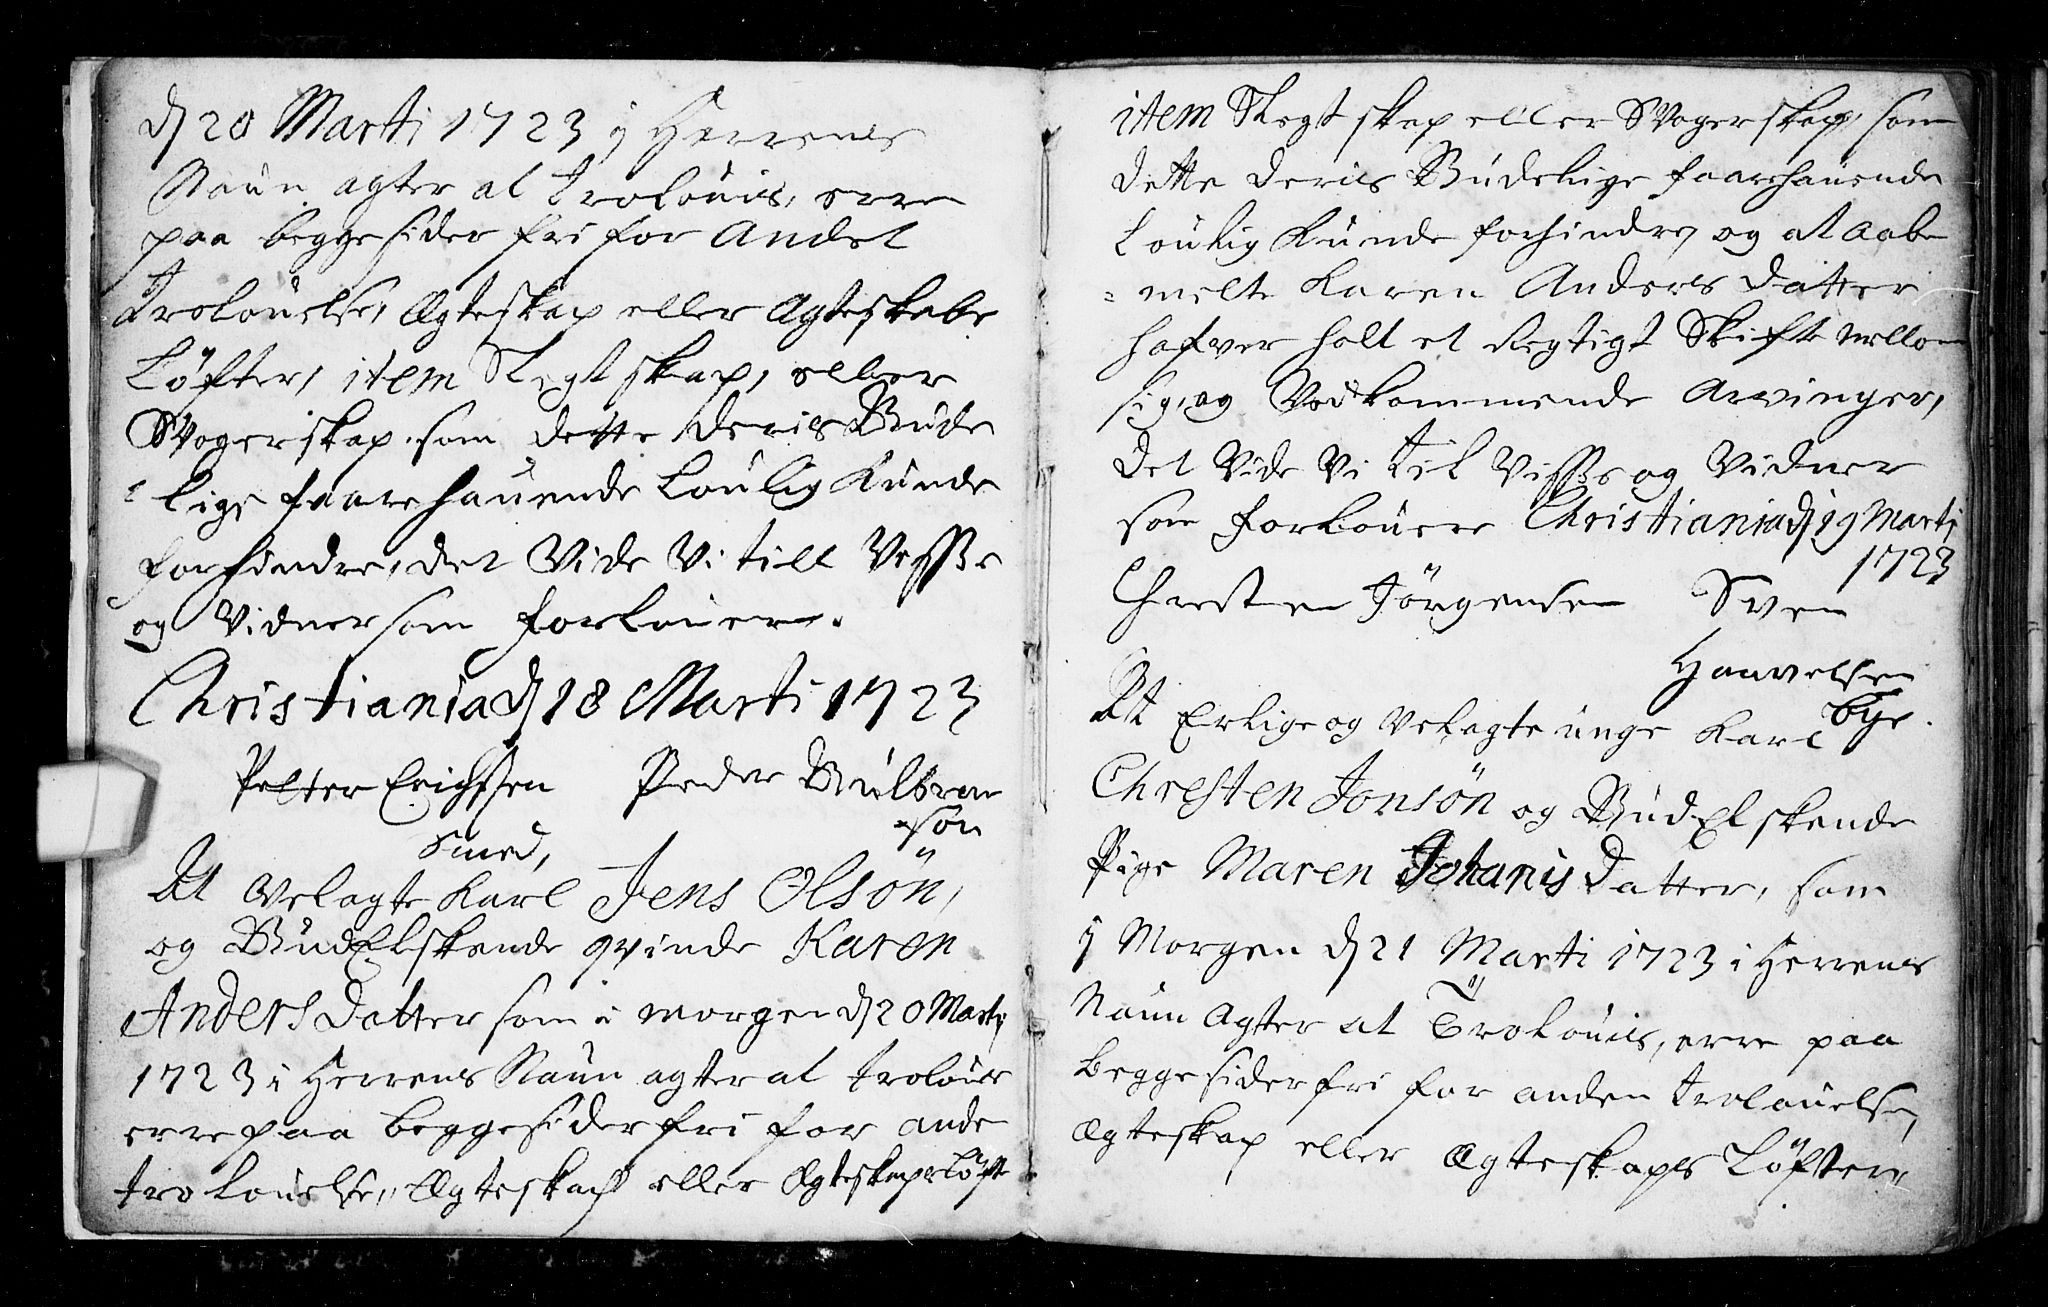 d 20 Marti 1723 i Herrens
Naun agter at Trolouis, erre
paa begge sider fri for Andet
Trolouelse, Ægteskap eller Ægteskabs
Løfter, item Slegtskap, eller
Svogerskap som dette deris Brude
lige forrehauende Loulig Kunde
forhindre, det Vide Vi till Visse
og Vidner som Forlouere.
Christiania d 18 Marti 1723
Petter Erichsen Peder
Smed, søn
At Velagte Karl Jens Olsøn,
og Gudelskende qvinde Karen
Anders Datter som i morgen d 20 Marti
1723 i Herrens Naun agter at troloues
erre paa beggesider fri for ande
trolouelse, Ægteskap eller Ægteskaps Løfte
item Slegtskap eller Svogerskap, som
dette deris Brudelige foorehauende
Loulig Kunde forhindre, og at aabe
melte Karen Anders Datter
hafver holt et Regtigt Skifte mellom
sig, og Vedkommende Arvinger,
det Vide Vi til Visse og Vidner
som forlouere Christiania d 19 Marti
1723
Chresten Jørgensen Sven
Haavelsen
bye.
At Erlige og Velagte unge Karl
Chresten Jonsøn og Gudelskende
Pige Maren Johanis Datter, som
i Morgen d 21 Marti 1723 i Herrens
Naun Agter at Trolouis, erre paa
beggesider fri for anden trolouelse,
Ægteskap eller Ægteskaps Løfter,